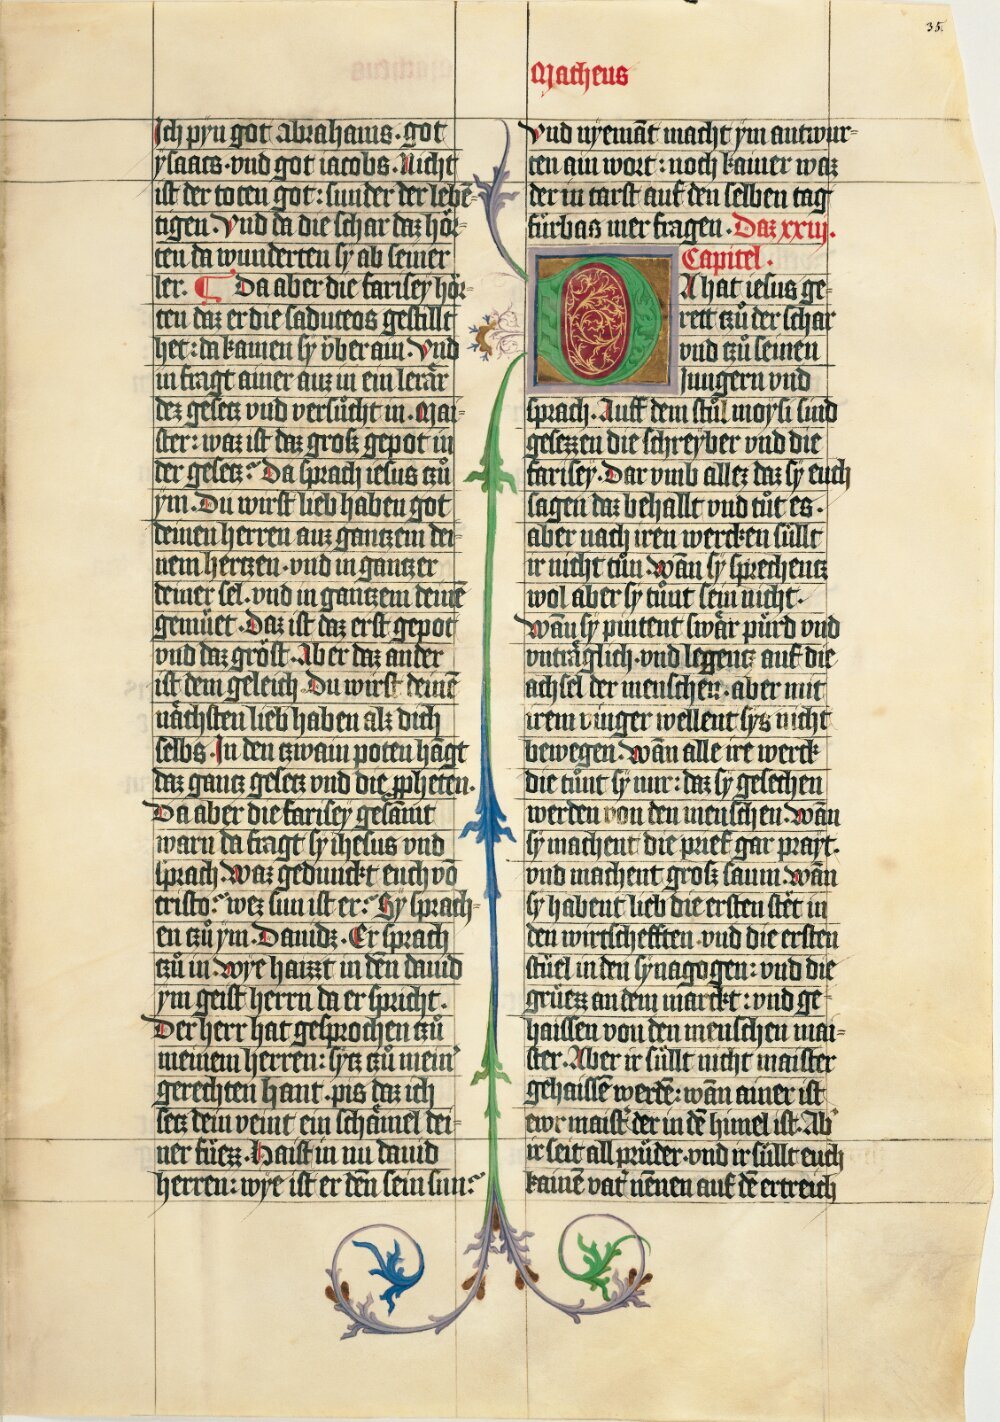 35.
Matheus
Ich pyn got abrahams · got
ysaacs · vnd got iacobs. Nicht
ist der toten got: sunder der lebē-
tigen. Vnd da die schar daz hör-
ten da wunderten sy ab seiner
ler. ¶ Da aber die farisey hör-
ten daz er die saduceos gestillt
het: da kamen sy vber ain. Vnd
in fragt ainer auz in ein lerär
dez gesetz vnd versůcht in. Mai-
ster: waz ist daz grosz gepot in
der gesetz? Da sprach iesus tzů
ym. Du wirst lieb haben got
deinen herren auz gantzem dei-
nem hertzen · vnd in gantzer
deiner sel. vnd in gantzem deinē
gemüet. Daz ist daz erst gepot
vnd daz gröst. Aber daz ander
ist dem geleich. Du wirst deinē
nächsten lieb haben alz dich
selbs. In den tzwain poten hāgt
daz gantz gesetz vnd die ꝓpheten.
Da aber die farisey gesāmt
warn da fragt sy ihesus vnd
sprach. Waz gedunckt euch vō
cristo? wez sun ist er? Sy sprach-
en tzů ym. Dauidz. Er sprach
tzů in. Wye haizzt in dēn dauid
ym geist herrn da er spricht.
Der herr hat gesprochen tzů
meinem herren: sytz tzů mein̉
gerechten hant. pis daz ich
setz dein veint ein schämel dei-
ner füezz. Haist in nu dauid
herren: wye ist er dēn sein sun?
Vnd nyemāt macht ym antwur-
ten ain wort: noch kainer waz
der in tarst auf den selben tag
fürbas mer fragen. Daz xxiij.
Capitel.
DA hat iesus ge-
rett tzů der schar
vnd tzů seinen
jungern vnd
sprach. Auff dem stůl moysi sind
gesezzen die schreyber vnd die
farisey. Dar vmb allez daz sy euch
sagen daz behallt vnd tůt es.
aber nach iren wercken süllt
ir nicht tůn. Wān sy sprechentz
wol aber sy tůnt sein nicht.
Wān sy pintent swär pürd vnd
vnträglich. vnd legentz auf die
achsel der menschen. aber mit
irem vinger wellent sys nicht
bewegen. Wān alle ire werck
die tůnt sy nur: daz sy gesechen
werden von den menschen. Wān
sy machent die prief gar prayt.
vnd machent grosz saum. Wān
sy habent lieb die ersten stët in
den wirtschefften. vnd die ersten
stüel in den synagogen: vnd die
grüezz an dem marckt: vnd ge-
haissen von den menschen mai-
ster. Aber ir süllt nicht maister
gehaissē werdē: wān ainer ist
ewr maist̉ der in dē himel ist. Ab̉
ir seit all prüder. vnd ir süllt euch
kainē vat̉ nēnen auf dē ertreich